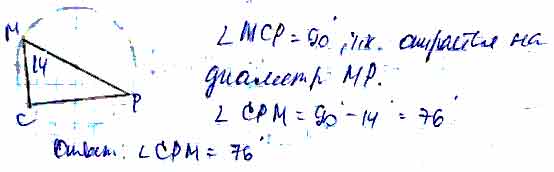 M
14
P
C
∠ MCP = 90°, т.к. опирается на
диаметр MP.
∠ CPM = 90° - 14° = 76°
Ответ: ∠ CPM = 76°